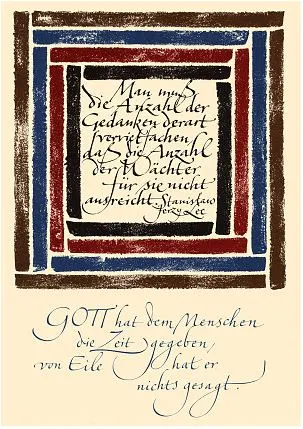 Man muß
die Anzahl der
Gedanken derart
vervielfachen,
daß die Anzahl
der Wächter
für sie nicht
ausreicht. Stanisław
Jerzy Lec
GOTT hat dem Menschen
die Zeit gegeben,
von Eile hat er
nichts gesagt.